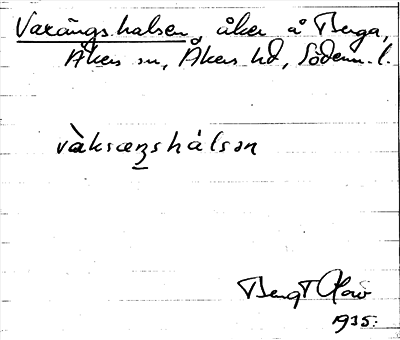 Vaxängshalsen, åker å Berga,
Åkers sn, Åkers hd, Söderm. l.
vàksæŋshálsən
Bengt
1935.